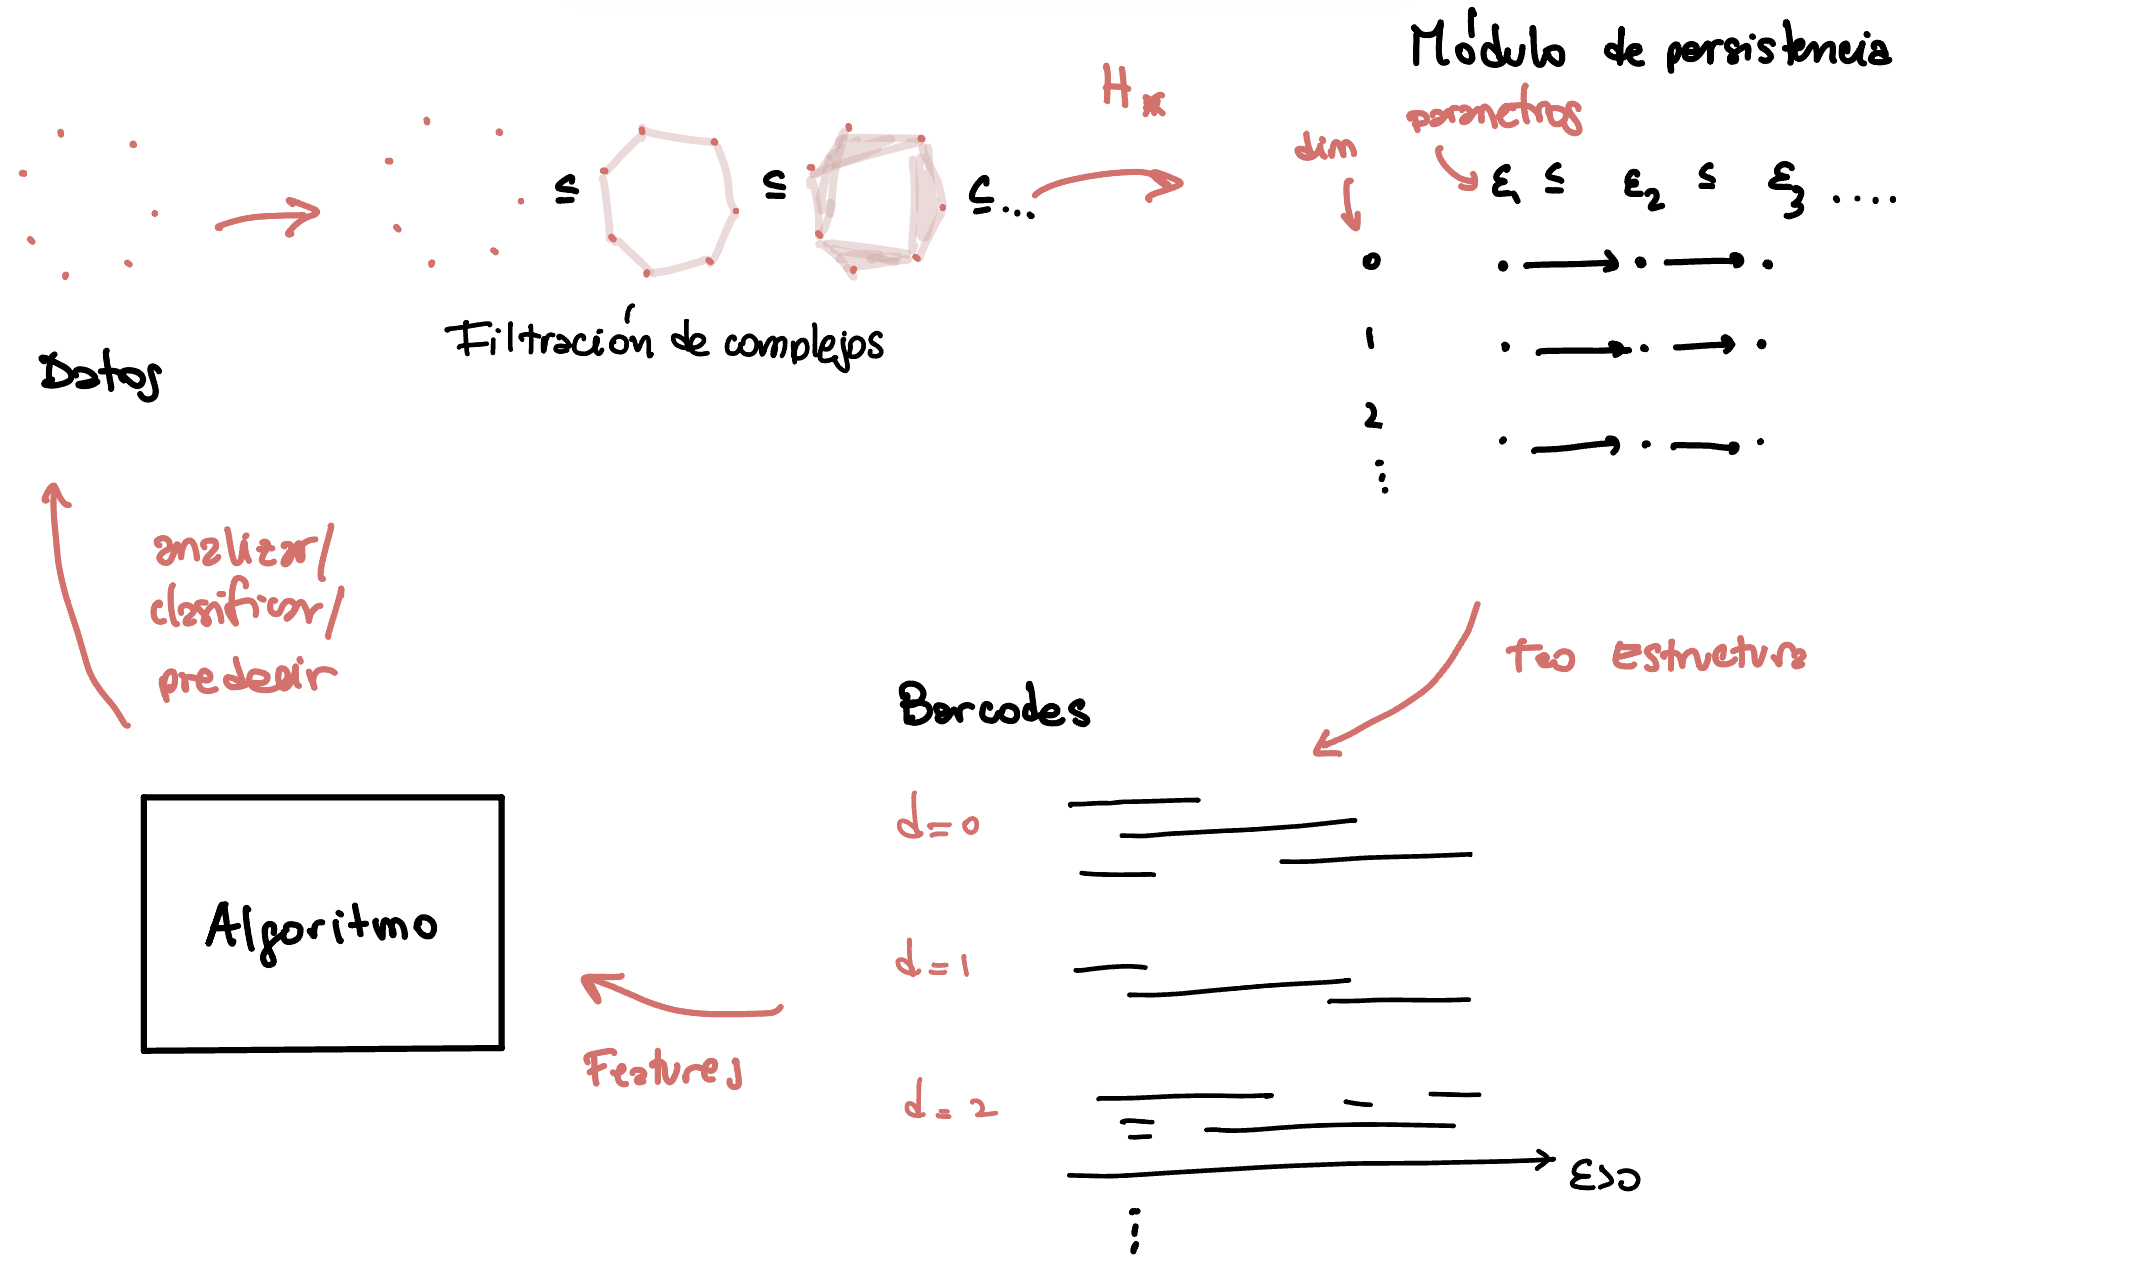 Módulo de persistencia
H*
parametros
dim
ε1 ≤ ε2 ≤ ε3 ....
≤ ≤ ⊆...
0
1
2
⋮
Filtración de complejos
Datos
analizar/
clasificar/
predecir
teo Estructura
Barcodes
d=0
d=1
d=2
ε>0
⋮
Algoritmo
Features